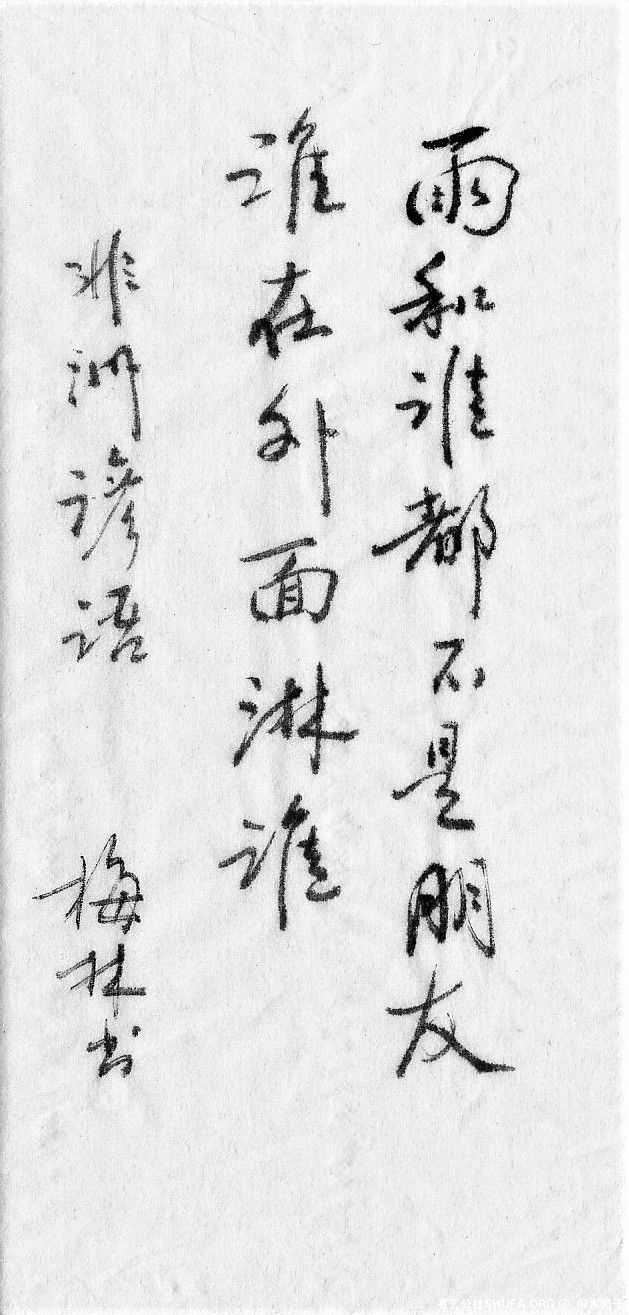 雨和谁都不是朋友
谁在外面淋谁
非洲谚语
梅林书